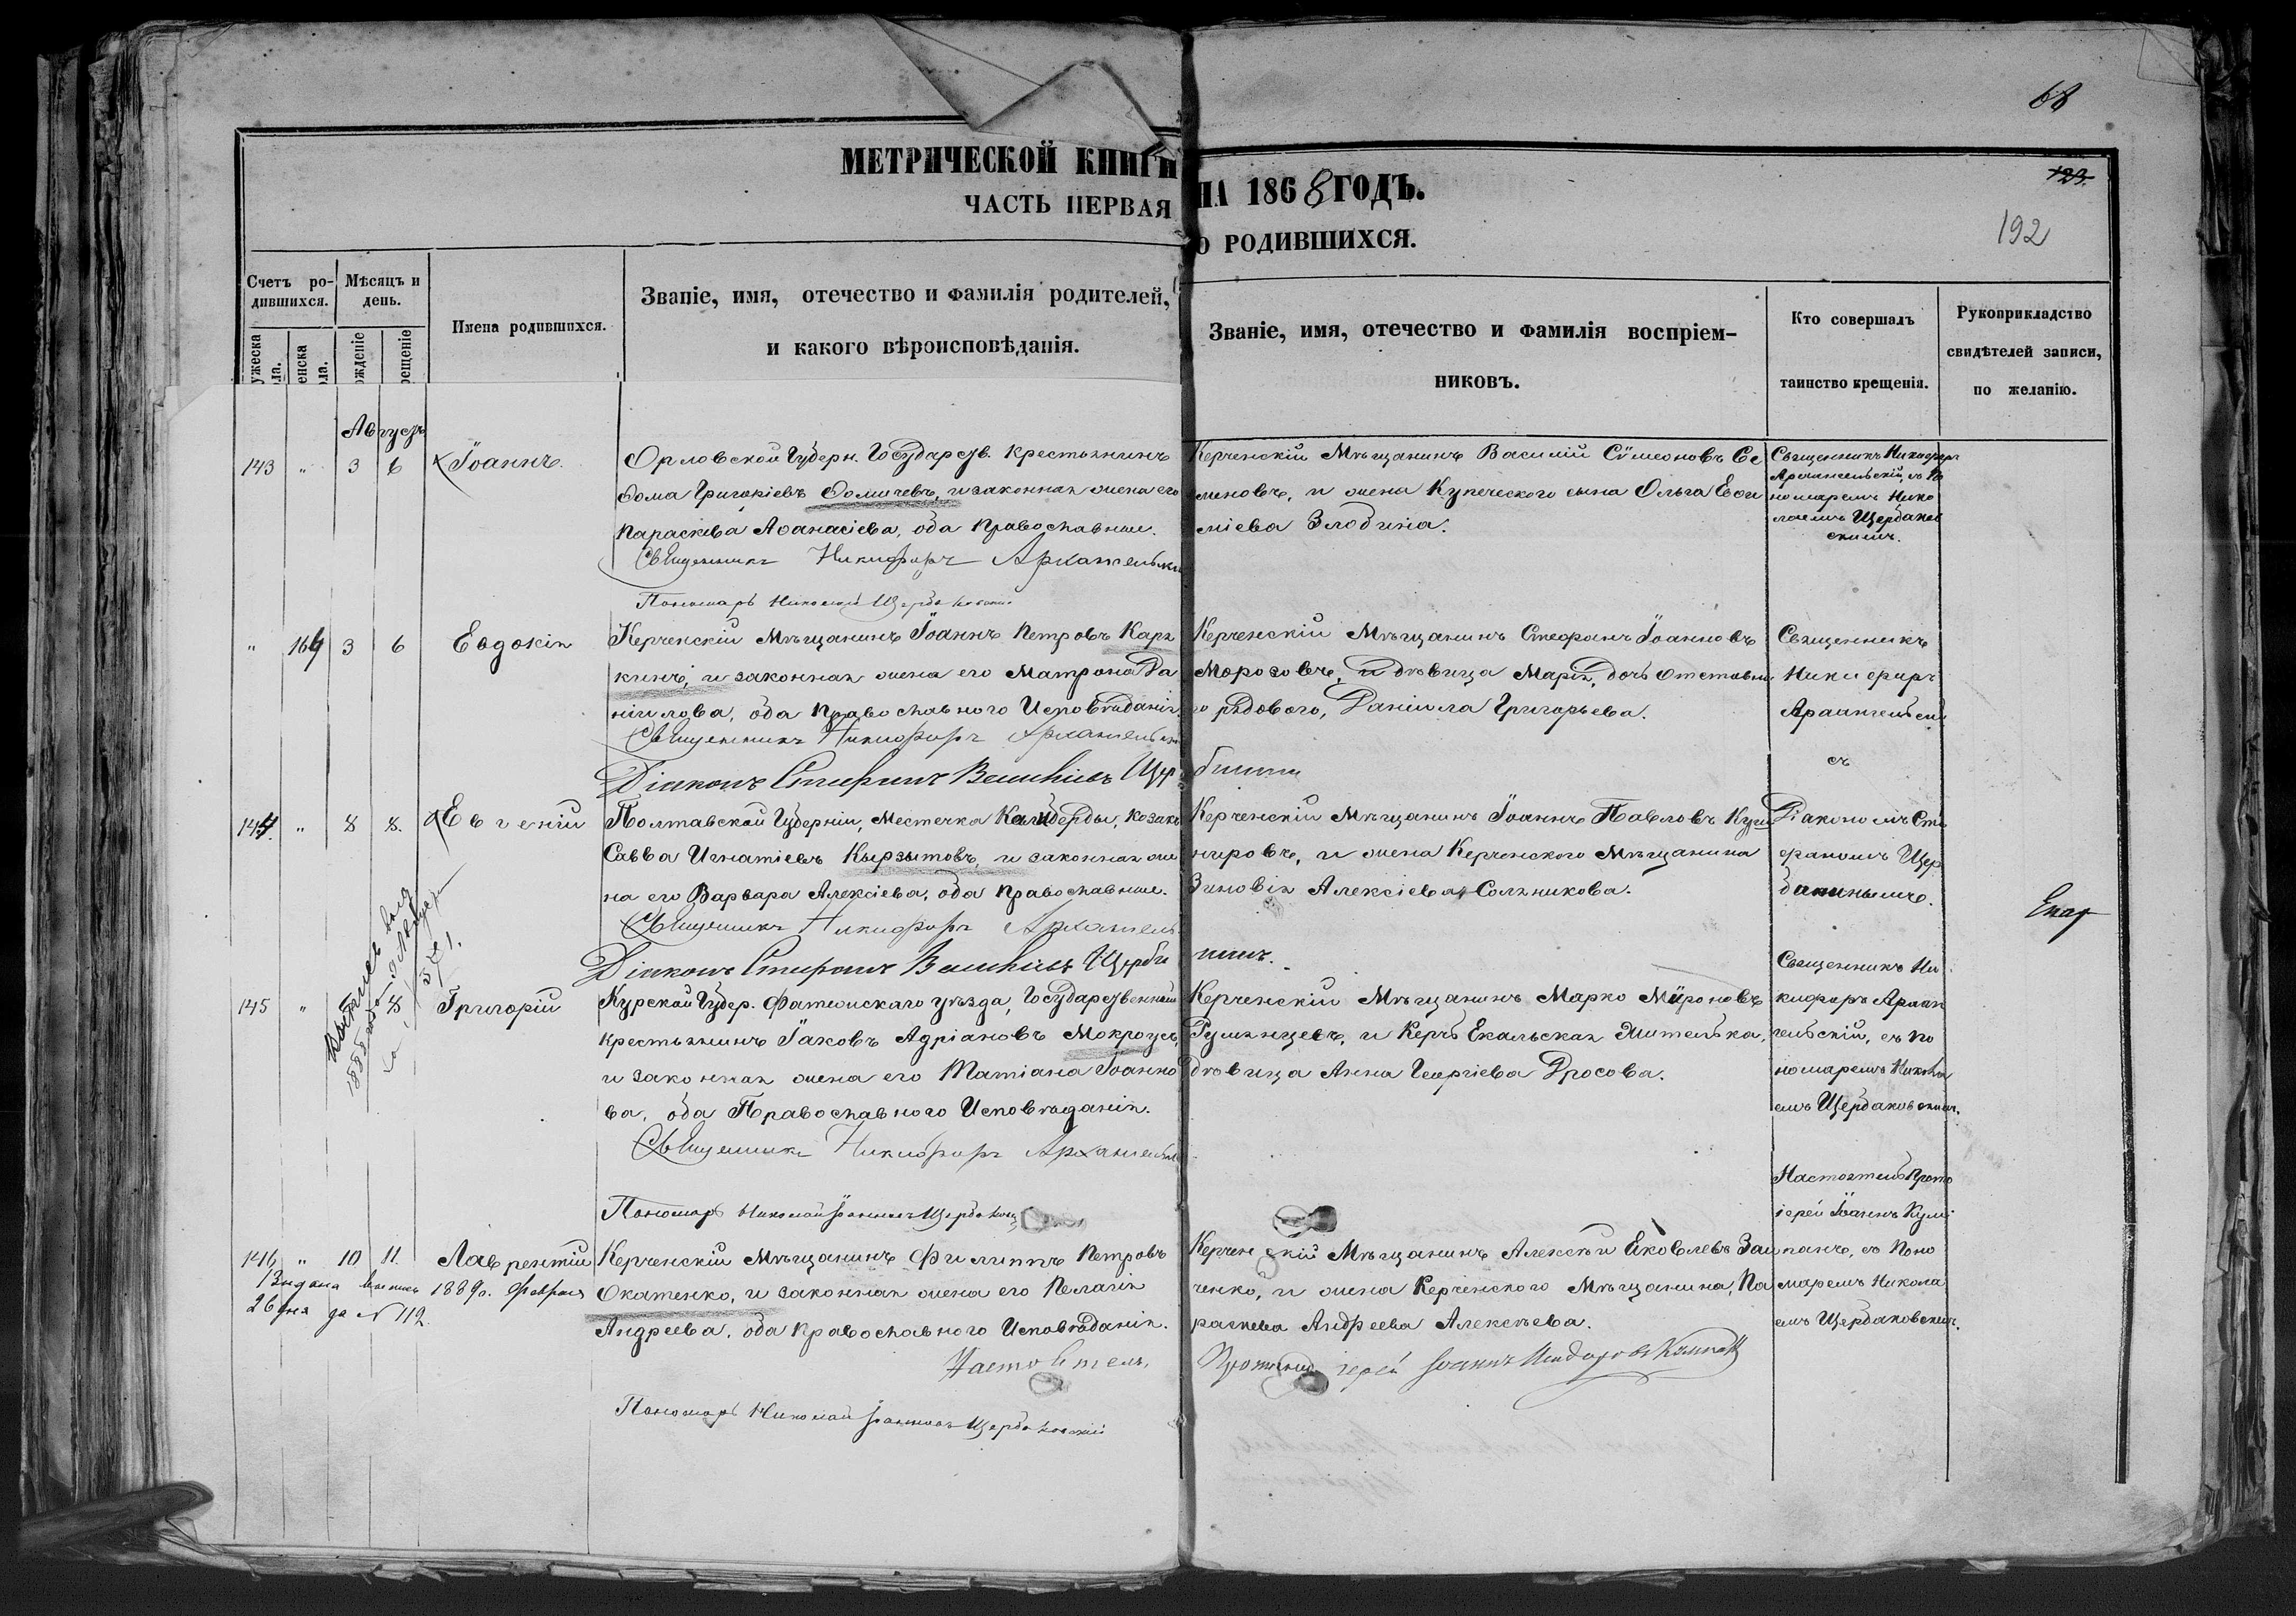 68
МЕТРИЧЕСКОЙ КНИГИ НА 1868 ГОДЪ.
123.
192
ЧАСТЬ ПЕРВАЯ О РОДИВШИХСЯ.
Счетъ ро-
дившихся.
Мѣсяцъ и
день.
Имена родившихся.
Званіе, имя, отечество и фамилія родителей,
и какого вѣроисповѣданія.
Званіе, имя, отечество и фамилія воспріем-
никовъ.
Кто совершалъ
таинство крещенія.
Рукоприкладство
свидѣтелей записи,
по желанію.
Августъ
143 " 3 6 Іоаннъ.
Орловской Губерн. Государств. крестьянинъ
Ѳома Григоріевъ Ѳомичевъ, и законная жена его
Параскева Аѳанасіева, оба православные.
Священникъ Никифоръ Архангельскій
Пономарь Николай Щербаковскій
Керченскій Мѣщанинъ Василій Сѵмеоновъ Се
меновъ, и жена Купеческого сына Ольга Евѳи
міева Злобина.
Священникъ Никифоръ
Архангельскій, съ По
номаремъ Нико
лаемъ Щербаков
скимъ.
" 164 3 6 Евдокія
Керченскій Мѣщанинъ Іоаннъ Петровъ Каря
кинъ, и законная жена его Матрона Да
ніилова, оба Православного Исповѣданія.
Священникъ Никифоръ Архангельскій
Діаконъ Стефанъ Васильевъ Щербининъ
Керченскій Мѣщанинъ Стефанъ Іоанновъ
Морозовъ, и дѣвица Марія, дочь отставна
го рядового, Даніила Григорьева.
Священникъ
Никифоръ
Архангельскій
съ
144. " 8 8. Евгеній
Полтавской Губерніи, Местечка Калиберды, козакъ
Савва Игнатіевъ Кырзытовъ, и законная же
на его Варвара Алексіева, оба православные.
Священникъ Никифоръ Архангель
Діаконъ Стефанъ Васильевъ Щербининъ.
Керченскій Мѣщанинъ Іоаннъ Павловъ Куш
нировъ, и жена Керченского Мѣщанина
Зиновія Алексіева Соляникова.
Діакономъ Сте
фаномъ Щер
бининымъ.
Екат
145 " 8 Григорій
Курской Губер. Фатежскаго уѣзда, Государственный
крестьянинъ Іаковъ Адріановъ Мокроусъ,
и законная жена его Татіана Іоанно
ва, оба Православного Исповѣданія.
Священникъ Никифоръ Архангельскій
Пономарь Николай Іоанновъ Щербаковскій
Керченскій Мѣщанинъ Марко Мѵроновъ
Румянцевъ, и Керчь Екальская Жителька,
дѣвица Анна Георгіева Дросова.
Священникъ Ни
кифоръ Архан
гельскій, съ По
номаремъ Никола
емъ Щербаковскимъ.
146 " 10 11. Лаврентій
Выдана выпись 1889г. Февраля
26 дня за № 112.
Керченскій Мѣщанинъ Филиппъ Петровъ
Окатенко, и законная жена его Пелагія
Андреева, оба Православного Исповѣданія.
Настоятель, Протоіерей Іоаннъ
Пономарь Николай Іоанновъ Щербаковскій
Керченскій Мѣщанинъ Алексѣй Яковлевъ Заи
ченко, и жена Керченского Мѣщанина, Па
раскева Андреева Алексѣева.
Настоятель Прото
іерей Іоаннъ Кули
панъ, съ Поно
маремъ Никола
емъ Щербаковскимъ.